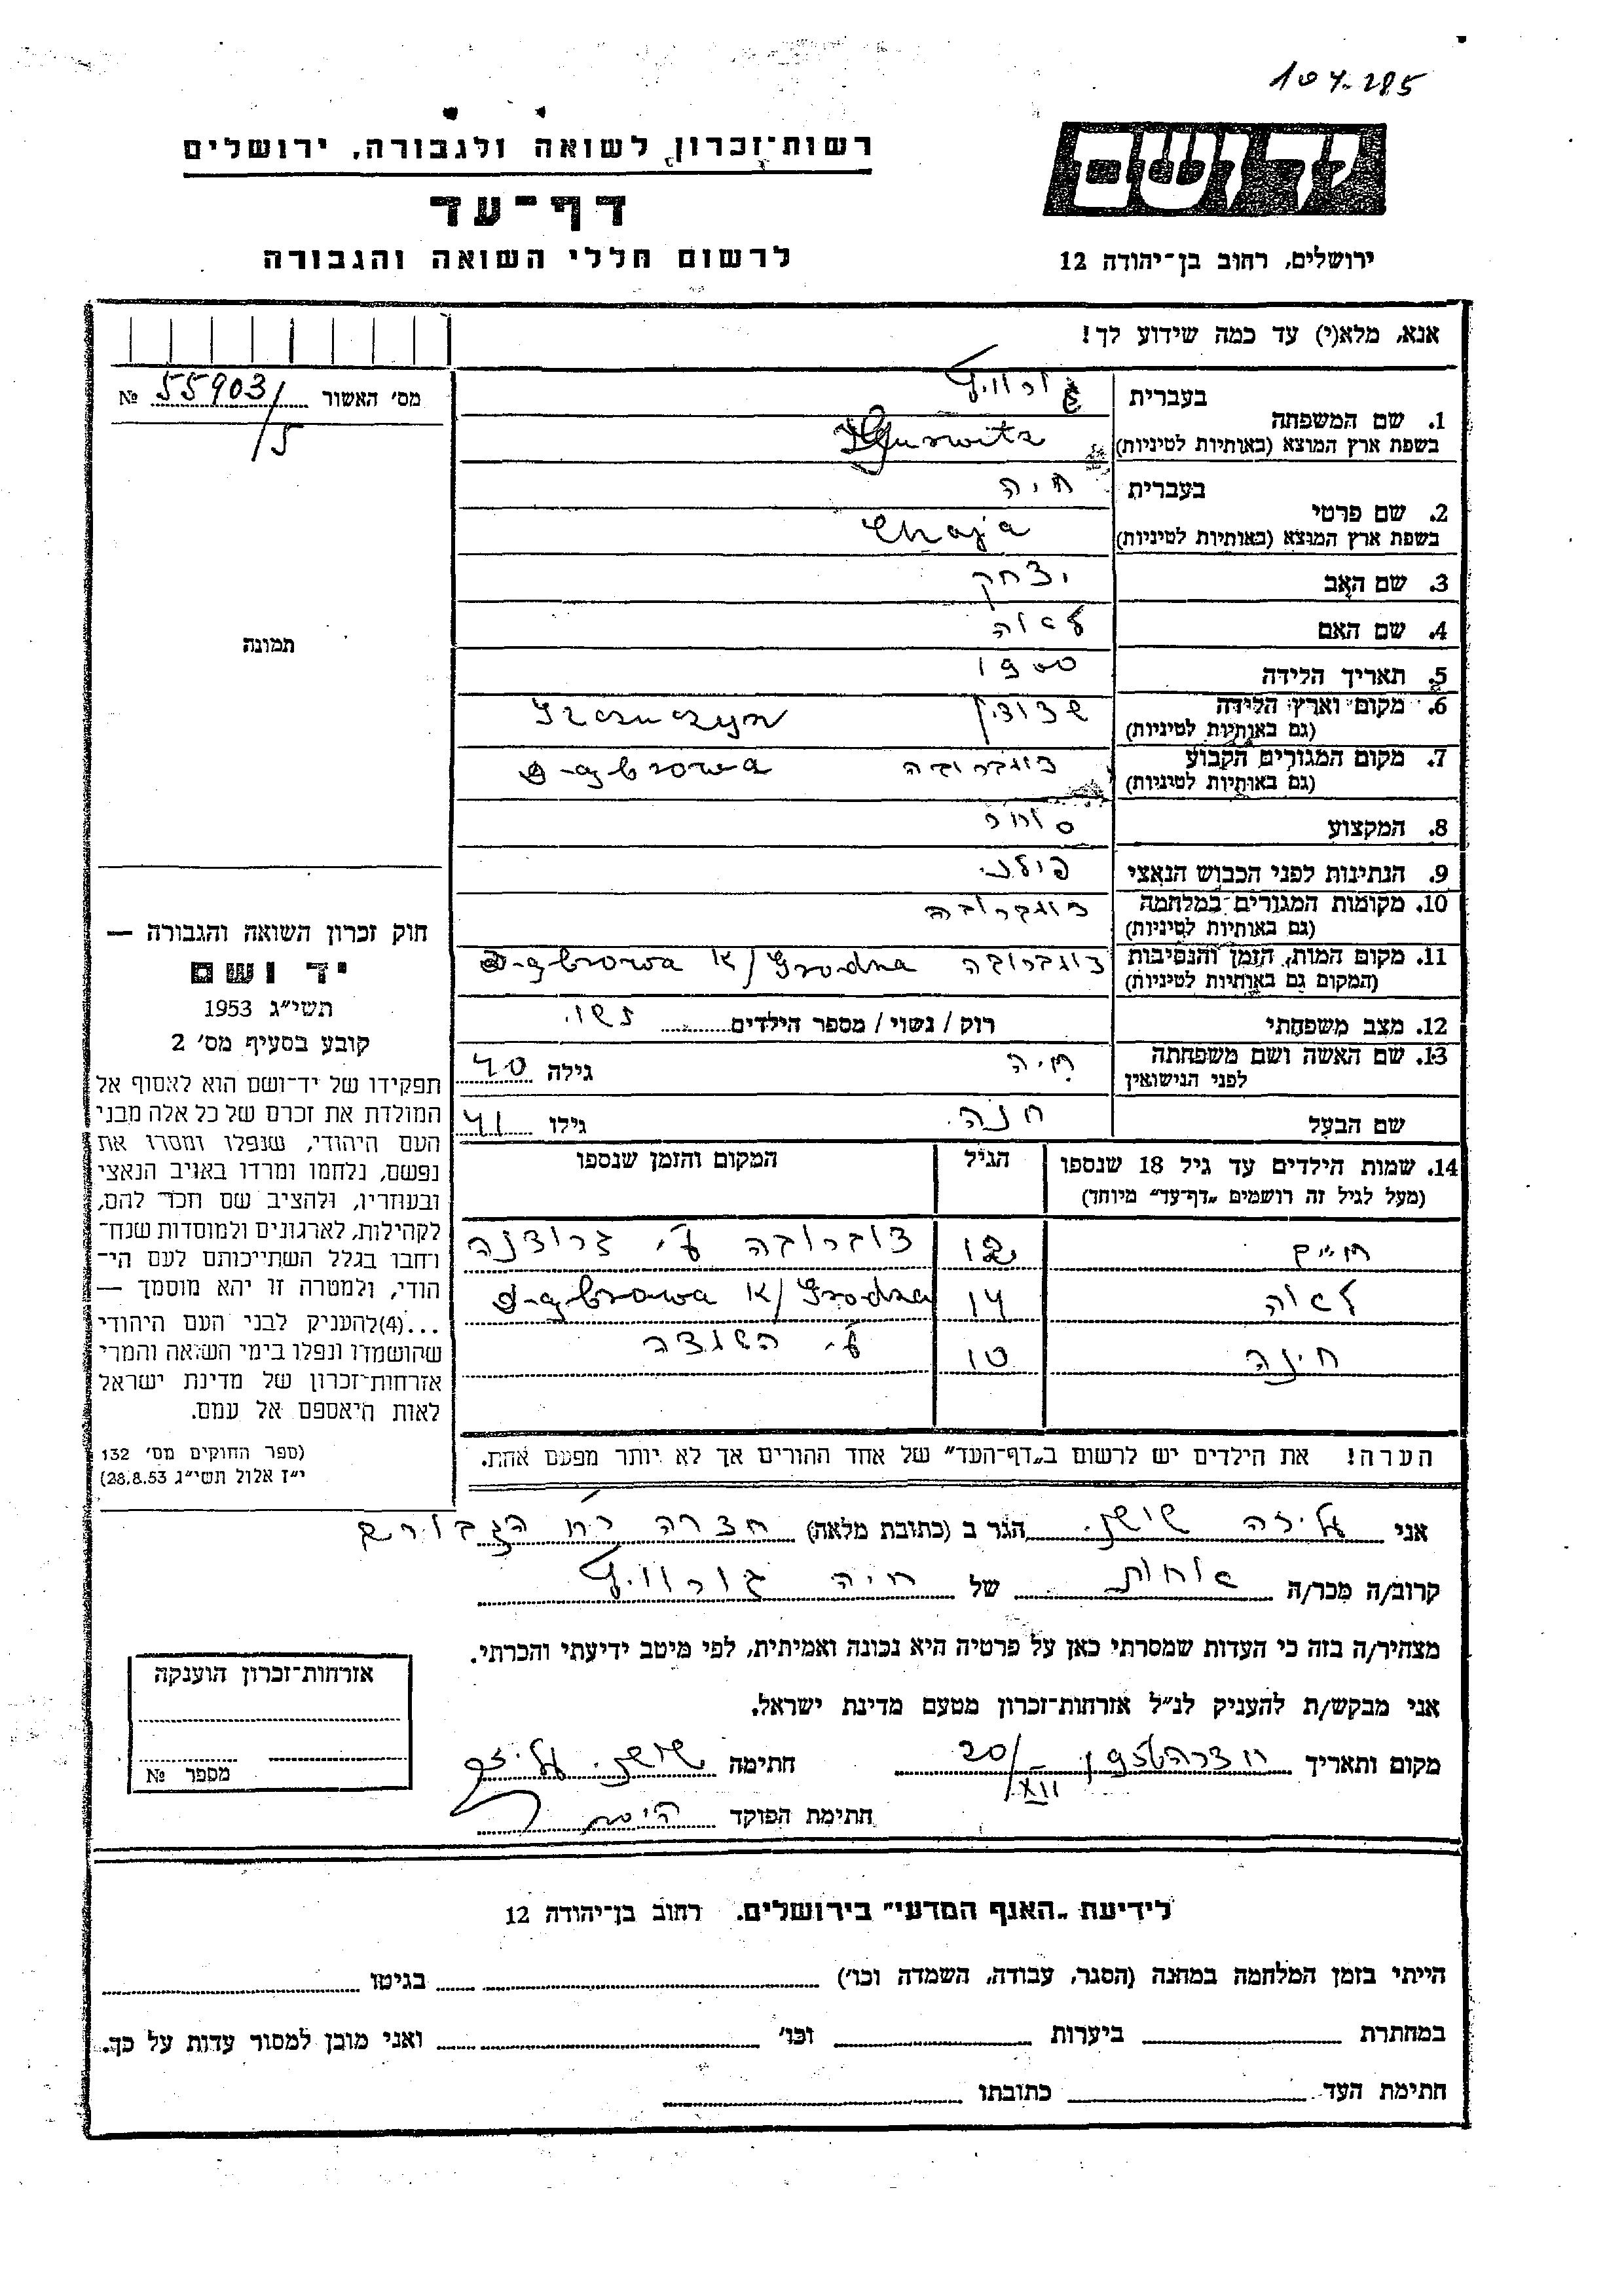 107.285
יד ושם
רשות־זכרון לשואה ולגבורה, ירושלים
דף־עד
לרשום חללי השואה והגבורה
ירושלים, רחוב בן־יהודה 12
אנא, מלא(י) עד כמה שידוע לך!
מס׳ האשור 55903/5 №
1. שם המשפחה
בעברית
בשפת ארץ המוצא (באותיות לטיניות) Gurwitz
2. שם פרטי
בעברית חיה
בשפת ארץ המוצא (באותיות לטיניות) Chaja
3. שם האב יצחק
4. שם האם לאה
5. תאריך הלידה 1900
6. מקום וארץ הלידה
(גם באותיות לטיניות) Szczuczyn
7. מקום המגורים הקבוע דומברובה
(גם באותיות לטיניות) D-ąbrowa
8. המקצוע סוחר
9. הנתינות לפני הכבוש הנאצי
10. מקומות המגורים במלחמה דומברובה
(גם באותיות לטיניות)
11. מקום המות, הזמן והנסיבות דומברובה D-ąbrowa K/Grodna
(המקום גם באותיות לטיניות)
12. מצב משפחתי רוק / נשוי / מספר הילדים נשוי
13. שם האשה ושם משפחתה
לפני הנישואין חיה גילה 40
שם הבעל חנה גילו 41
14. שמות הילדים עד גיל 18 שנספו הגיל המקום והזמן שנספו
(מעל לגיל זה רושמים „דף־עד״ מיוחד)
חיים 12 דומברובה ע״י גרודנה
לאה 14 D-ąbrowa K/Grodna
חינה 10 ע״י
הערה! את הילדים יש לרשום ב„דף־העד״ של אחד ההורים אך לא יותר מפעם אחת.
תמונה
חוק זכרון השואה והגבורה —
יד ושם
תשי״ג 1953
קובע בסעיף מס׳ 2
תפקידו של יד־ושם הוא לאסוף אל
המולדת את זכרם של כל אלה מבני
העם היהודי, שנפלו ומסרו את
נפשם, נלחמו ומרדו באויב הנאצי
ובעוזריו, ולהציב שם וזכר להם,
לקהילות, לארגונים ולמוסדות שנח־
רחבו בגלל השתייכותם לעם הי־
הודי, ולמטרה זו יהא מוסמך —
...(4)להעניק לבני העם היהודי
שהושמדו ונפלו בימי השואה והמרי
אזרחות־זכרון של מדינת ישראל
לאות היאספם אל עמם.
(ספר החוקים מס׳ 132
י״ז אלול תשי״ג 28.8.53)
אני עליזה שושני הגר ב (כתובת מלאה) חדרה רח הגבורים
קרוב/ה מכר/ה אחות של חיה גורוויץ
מצהיר/ה בזה כי העדות שמסרתי כאן על פרטיה היא נכונה ואמיתית, לפי מיטב ידיעתי והכרתי.
אני מבקש/ת להעניק לנ״ל אזרחות־זכרון מטעם מדינת ישראל.
מקום ותאריך חדרה 20/XII חתימה שושני עליזה
חתימת הפוקד
אזרחות־זכרון הוענקה
מספר №
לידיעת „האגף המדעי״ בירושלים. רחוב בן־יהודה 12
הייתי בזמן המלחמה במחנה (הסגר, עבודה, השמדה וכו׳) בגיטו
במחתרת ביערות וכו׳ ואני מוכן למסור עדות על כך.
חתימת העד כתובתו